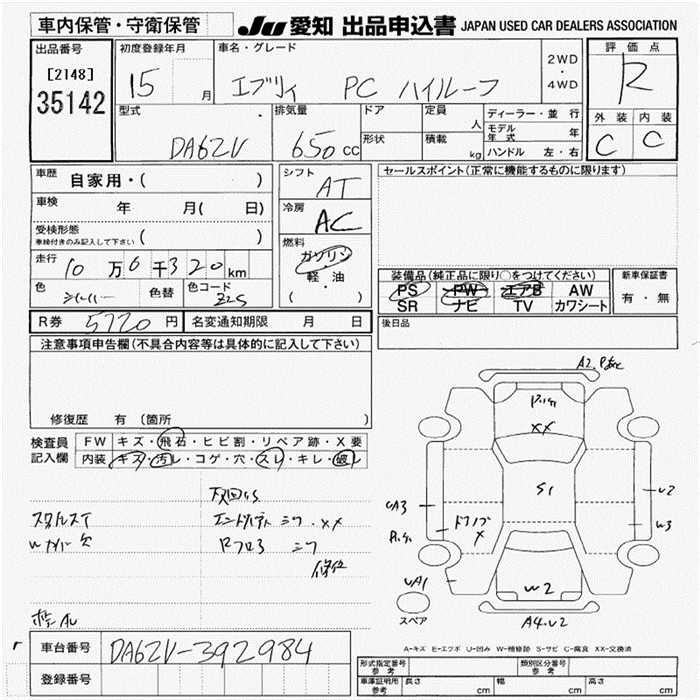 車内保管・守衛保管 JU 愛知 出品申込書 JAPAN USED CAR DEALERS ASSOCIATION
出品番号 初度登録年月 車名・グレード 評価点
[2148] 15 月 エブリィ PC ハイルーフ 2WD・4WD R
35142 型式 排気量 ドア 定員 人 ディーラー・並行 外装 内装
形状 積載 kg モデル年式 年 C C
DA62V 650 cc ハンドル 左・右
車歴 自家用・( ) シフト AT セールスポイント(正常に機能するものに限ります)
車検 年 月( 日) 冷房 AC
受検形態 車検付きのみ記入して下さい ( )
燃料 ガソリン 軽・油 ( )
走行 10万6千320km 装備品(純正品に限り○をつけてください) 新車保証書
色 シルバー 色替 色コード Z2S PS PW エアB AW 有・無
SR ナビ TV カワシート
R券 5720円 名変通知期限 月 日 後日品
注意事項申告欄(不具合内容等は具体的に記入して下さい)
修復歴 有 (箇所
検査員 FW キズ・飛石・ヒビ割・リペア跡・X要
記入欄 内装 キズ・汚レ・コゲ・穴・スレ・キレ・破レ
A2
XX
S1
UA3
U2
W3
ドアノブ X
UA1
W2
A4.U2
スペア
XX
Rフロア
修正
A-キズ E-エクボ U-凹み W-補修跡 S-サビ C-腐食 XX-交換済
車台番号 DA62V-392984
登録番号
形式指定番号 参考 類別区分番号 参考
車庫証明用 参考 長さ cm 幅 cm 高さ cm